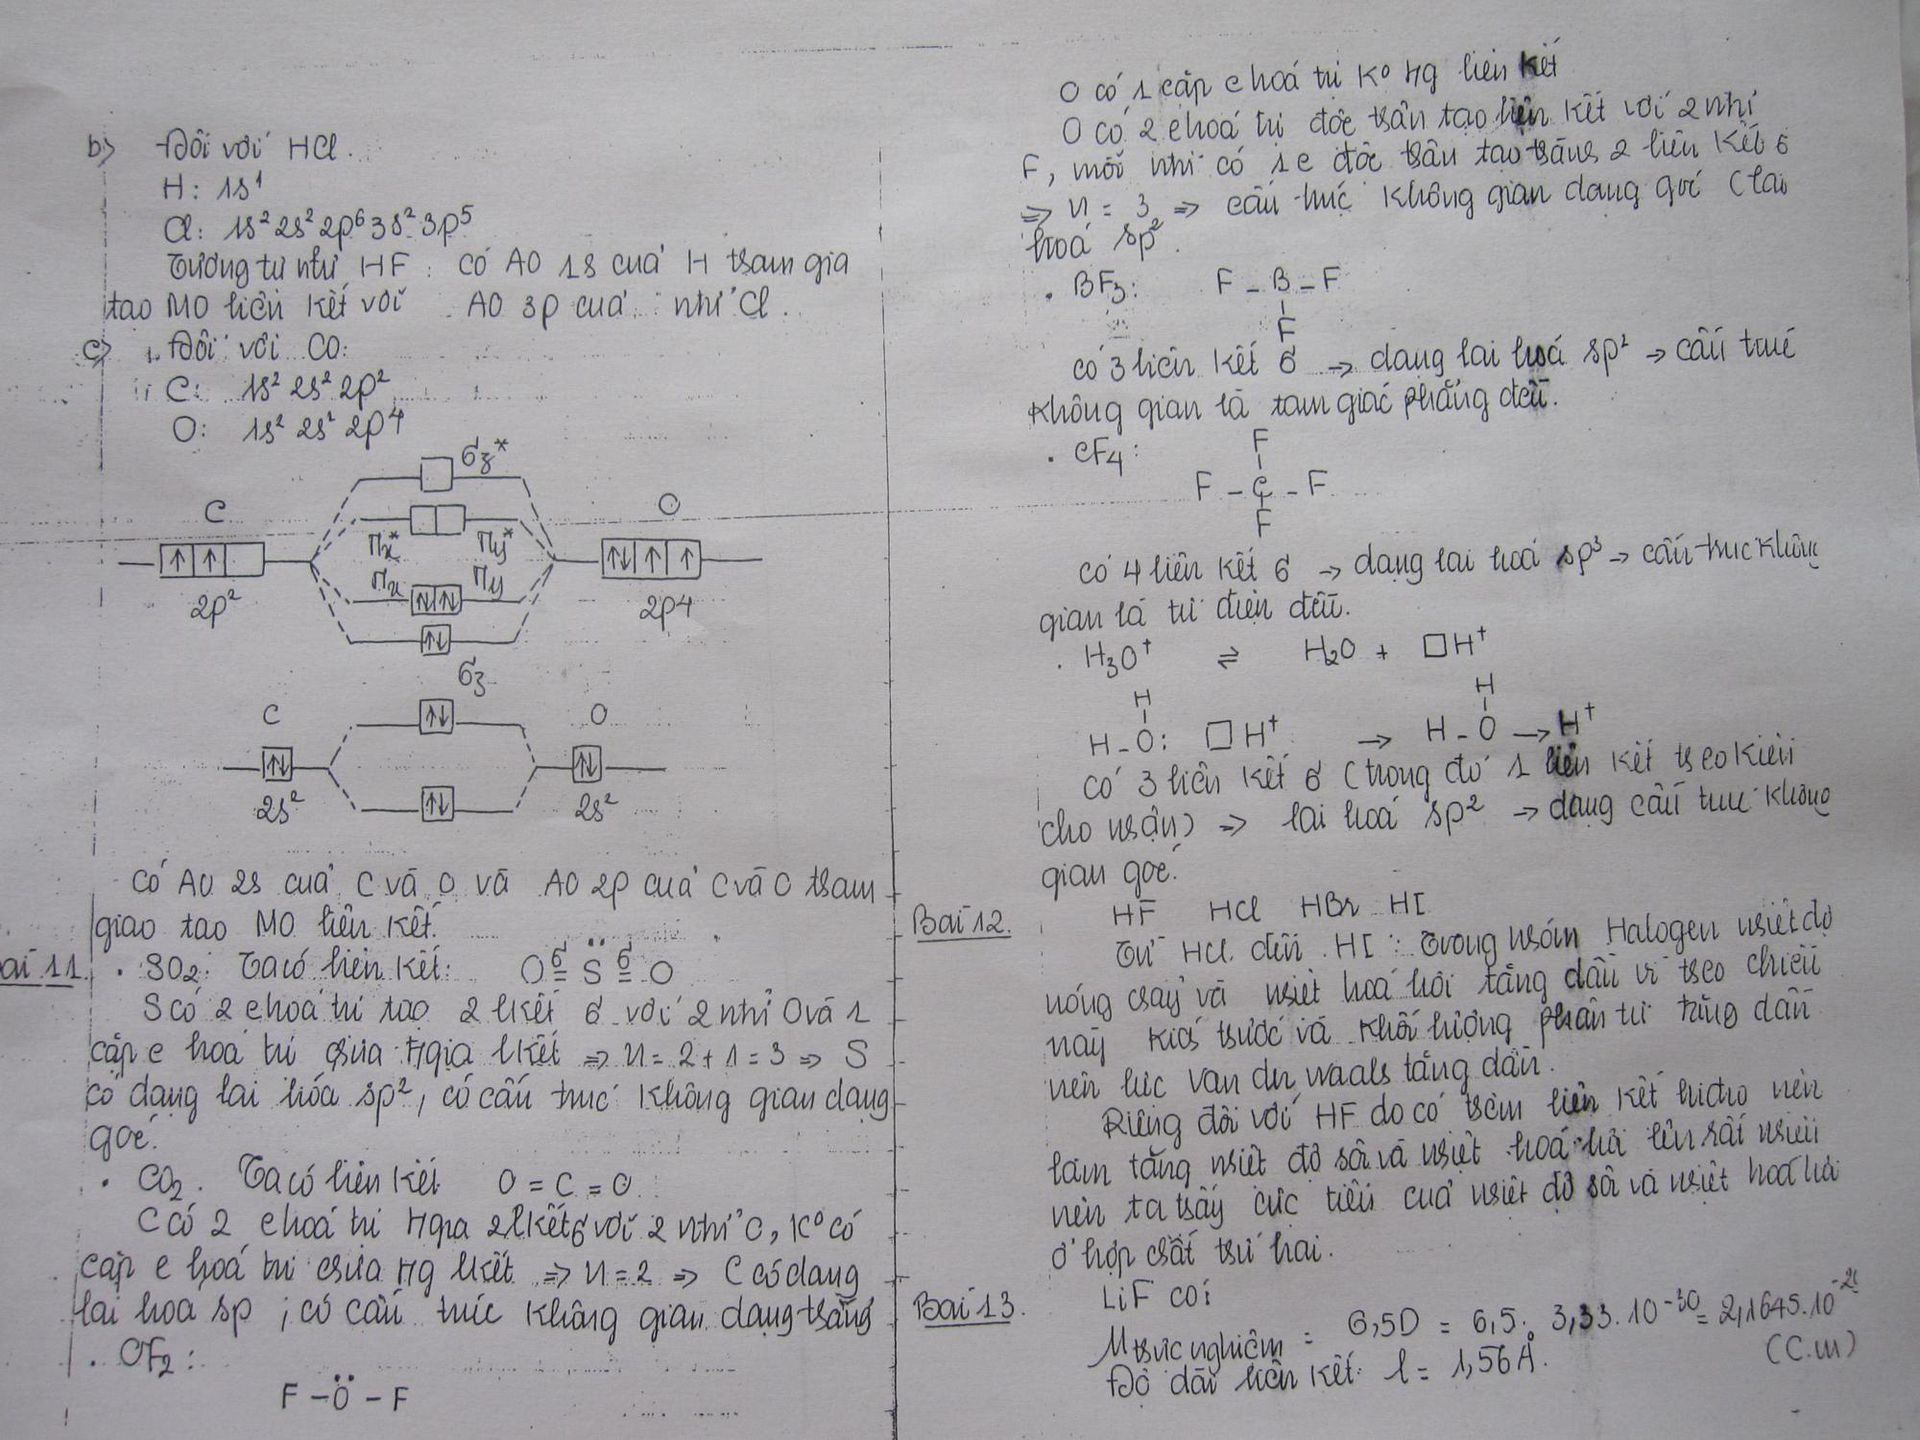 b) Đối với HCl.
H: 1s¹
Cl: 1s² 2s² 2p⁶ 3s² 3p⁵
Tương tự như HF: có AO 1s của H tham gia
tạo MO liên kết với AO 3p của nhí Cl.
c) Đối với CO:
C: 1s² 2s² 2p²
O: 1s² 2s² 2p⁴
σz*
C O
πx* πy*
πx πy
2p² 2p⁴
σz
C O
2s² 2s²
Có AO 2s của C và O và AO 2p của C và O tham
giao tạo MO liên kết.
ài 11. • SO₂: Ta có liên kết: O =σ S̈ =σ O
S có 2 e hoá trị tạo 2 lkết σ với 2 nhí O và 1
cặp e hoá trị chưa tgia lkết ⇒ n = 2 + 1 = 3 ⇒ S
có dạng lai hóa sp², có cấu trúc không gian dạng
góc.
• CO₂. Ta có liên kết O = C = O
C có 2 e hoá trị tgia 2 lkết σ với 2 nhí O, k° có
cặp e hoá trị chưa tg lkết ⇒ n = 2 ⇒ C có dạng
lai hoá sp, có cấu trúc không gian dạng thẳng
• OF₂:
F – Ö – F
O có 1 cặp e hoá trị k° tg liên kết
O có 2 e hoá trị độc thân tạo liên kết với 2 nhí
F, mỗi nhí có 1 e độc thân tạo thành 2 liên kết σ
⇒ n = 3 ⇒ cấu trúc không gian dạng góc (lai
hoá sp².
• BF₃: F – B – F
F
có 3 liên kết σ → dạng lai hoá sp² → cấu trúc
không gian là tam giác phẳng đều.
F
• CF₄:
F – C – F
F
có 4 liên kết σ → dạng lai hoá sp³ → cấu trúc không
gian là tứ diện đều.
• H₃O⁺ ⇌ H₂O + □H⁺
H H
H – O: □H⁺ → H – O → H⁺
Có 3 liên kết σ (trong đó 1 liên kết theo kiểu
cho nhận) ⇒ lai hoá sp² → dạng cấu trúc không
gian góc.
Bài 12. HF HCl HBr HI
Từ HCl đến HI: Trong nhóm Halogen nhiệt độ
nóng chảy và nhiệt hoá hơi tăng dần vì theo chiều
này kích thước và khối lượng phân tử tăng dần
nên lực van der waals tăng dần.
Riêng đối với HF do có thêm liên kết hiđro nên
làm tăng nhiệt độ sôi và nhiệt hoá hơi lên rất nhiều
nên ta thấy cực tiểu của nhiệt độ sôi và nhiệt hoá hơi
ở hợp chất thứ hai.
Bài 13. LiF có:
μ thực nghiệm = 6,5D = 6,5. 3,33. 10⁻³⁰ = 2,1645.10⁻²
(C.m)
Độ dài liên kết l = 1,56Å.